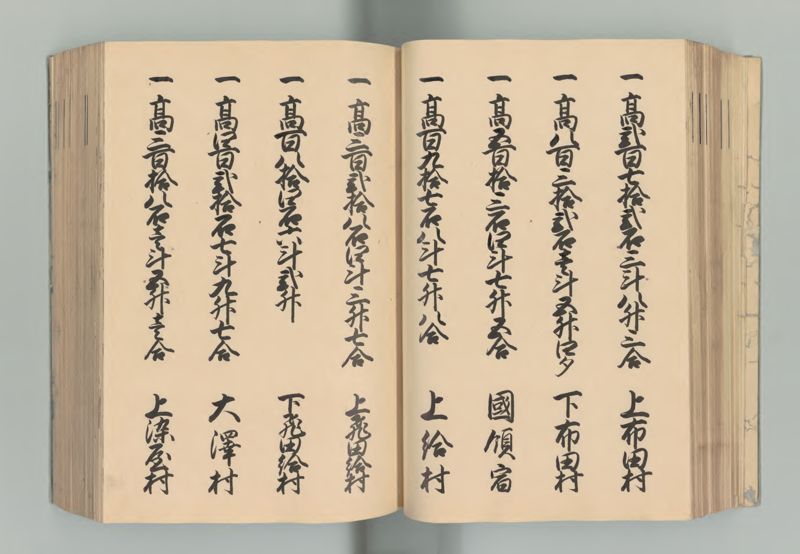 一 高弐百七拾弐石三斗八升三合 上布田村
一 高八百三拾弐石壱斗五升四夕 下布田村
一 高五百拾三石四斗七升五合 國領宿
一 高百九拾七石八斗七升八合 上給村
一 高三百弐拾八石四斗三升七合 上飛田給村
一 高百八拾四石六斗弐升 下飛田給村
一 高四百弐拾石七斗九升七合 大澤村
一 高三百拾八石壱斗五升壱合 上染屋村